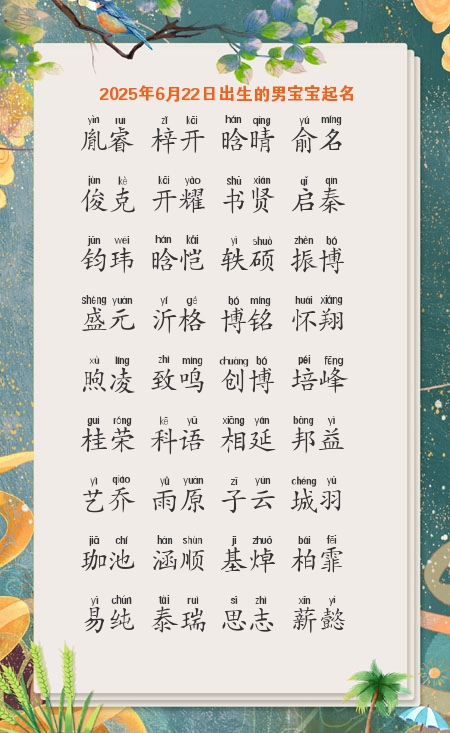 2025年6月22日出生的男宝宝起名
yìn ruì zǐ kāi hán qíng yú míng
胤睿 梓开 晗晴 俞名
jùn kè kāi yào shū xián qǐ qín
俊克 开耀 书贤 启秦
jūn wěi hán kǎi yì shuò zhèn bó
钧玮 晗恺 轶硕 振博
shèng yuán yí gé bó míng huái xiáng
盛元 沂格 博铭 怀翔
xù líng zhì míng chuàng bó péi fēng
煦凌 致鸣 创博 培峰
guì róng kē yǔ xiāng yán bāng yì
桂荣 科语 相延 邦益
yì qiáo yǔ yuán zǐ yún chéng yǔ
艺乔 雨原 子云 城羽
jiā chí hán shùn jī zhuō bǎi fēi
珈池 涵顺 基焯 柏霏
yì chún tài ruì sī zhì xīn yì
易纯 泰瑞 思志 薪懿